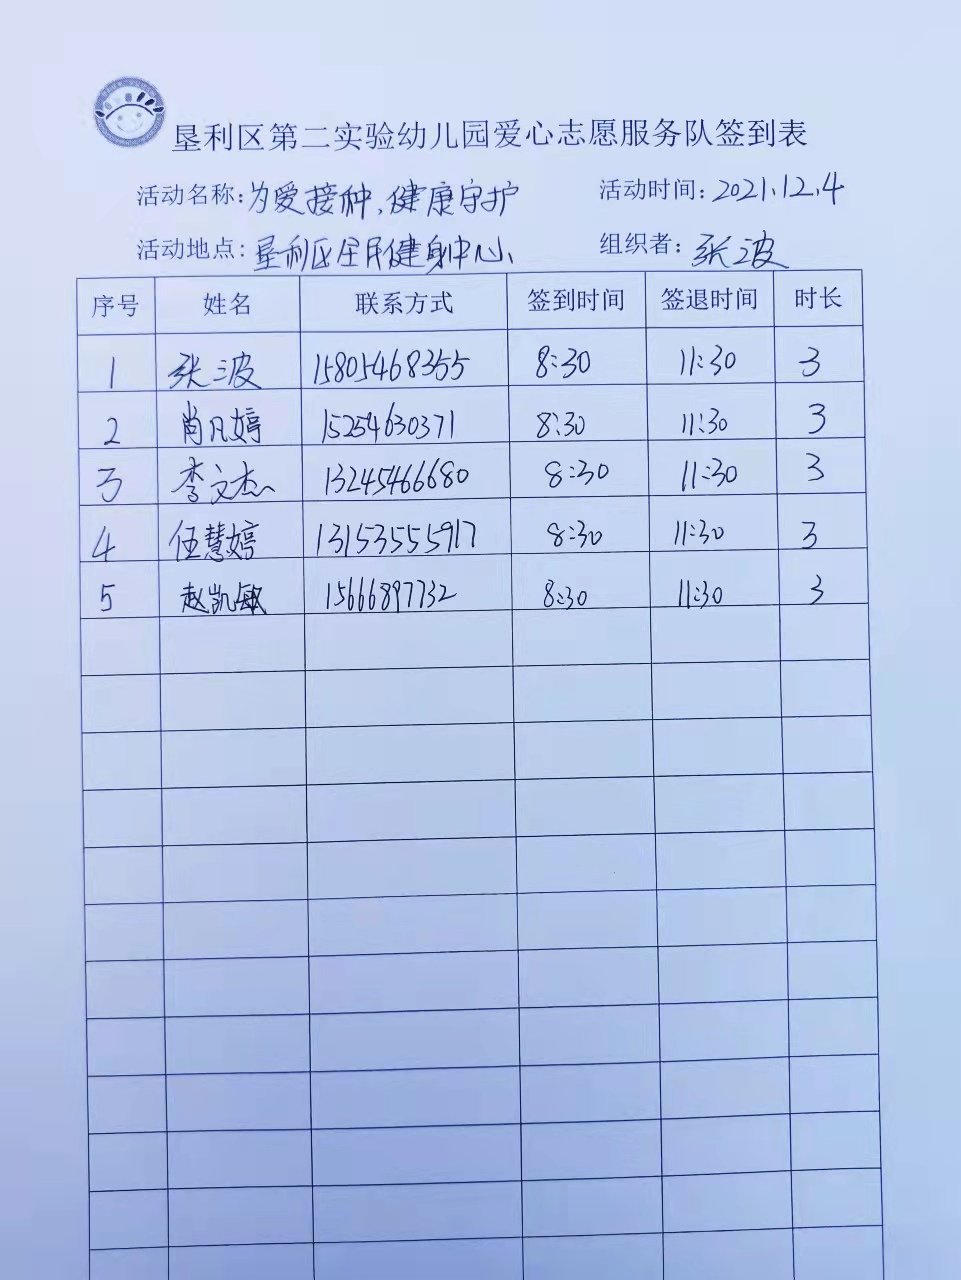 垦利区第二实验幼儿园爱心志愿服务队签到表
活动名称:为爱接种、健康守护 活动时间:2021.12.4
活动地点:垦利区全民健身中心、 组织者:张波
序号 姓名 联系方式 签到时间 签退时间 时长
1 张波 15805468355 8:30 11:30 3
2 肖凡婷 15254630371 8:30 11:30 3
3 李文杰 13245466680 8:30 11:30 3
4 任慧婷 13153555917 8:30 11:30 3
5 赵凯敏 15666897732 8:30 11:30 3